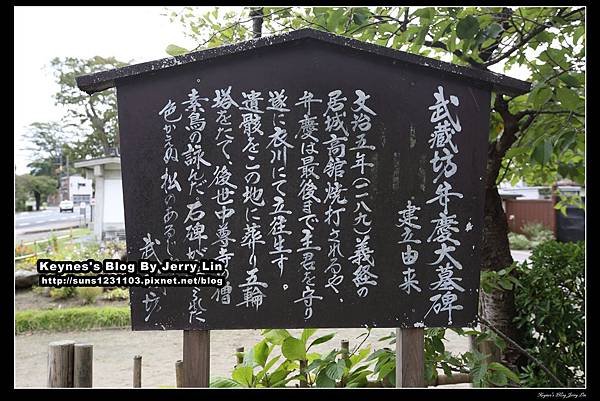 武蔵坊弁慶大墓碑
建立由来
文治五年(一一八九)義経の
居城高館焼打されるや、
弁慶は最後まで主君を守り
遂に衣川にて立往生す。
遺骸をこの地に葬り五輪
塔をたて、後世中尊寺の僧
素鳥の詠んだ石碑が
色かえぬ松のあるじ
武蔵坊
Keynes's Blog By Jerry Lin
http://suns1231103.pixnet.net/blog
Keynes's Blog Jerry Lin